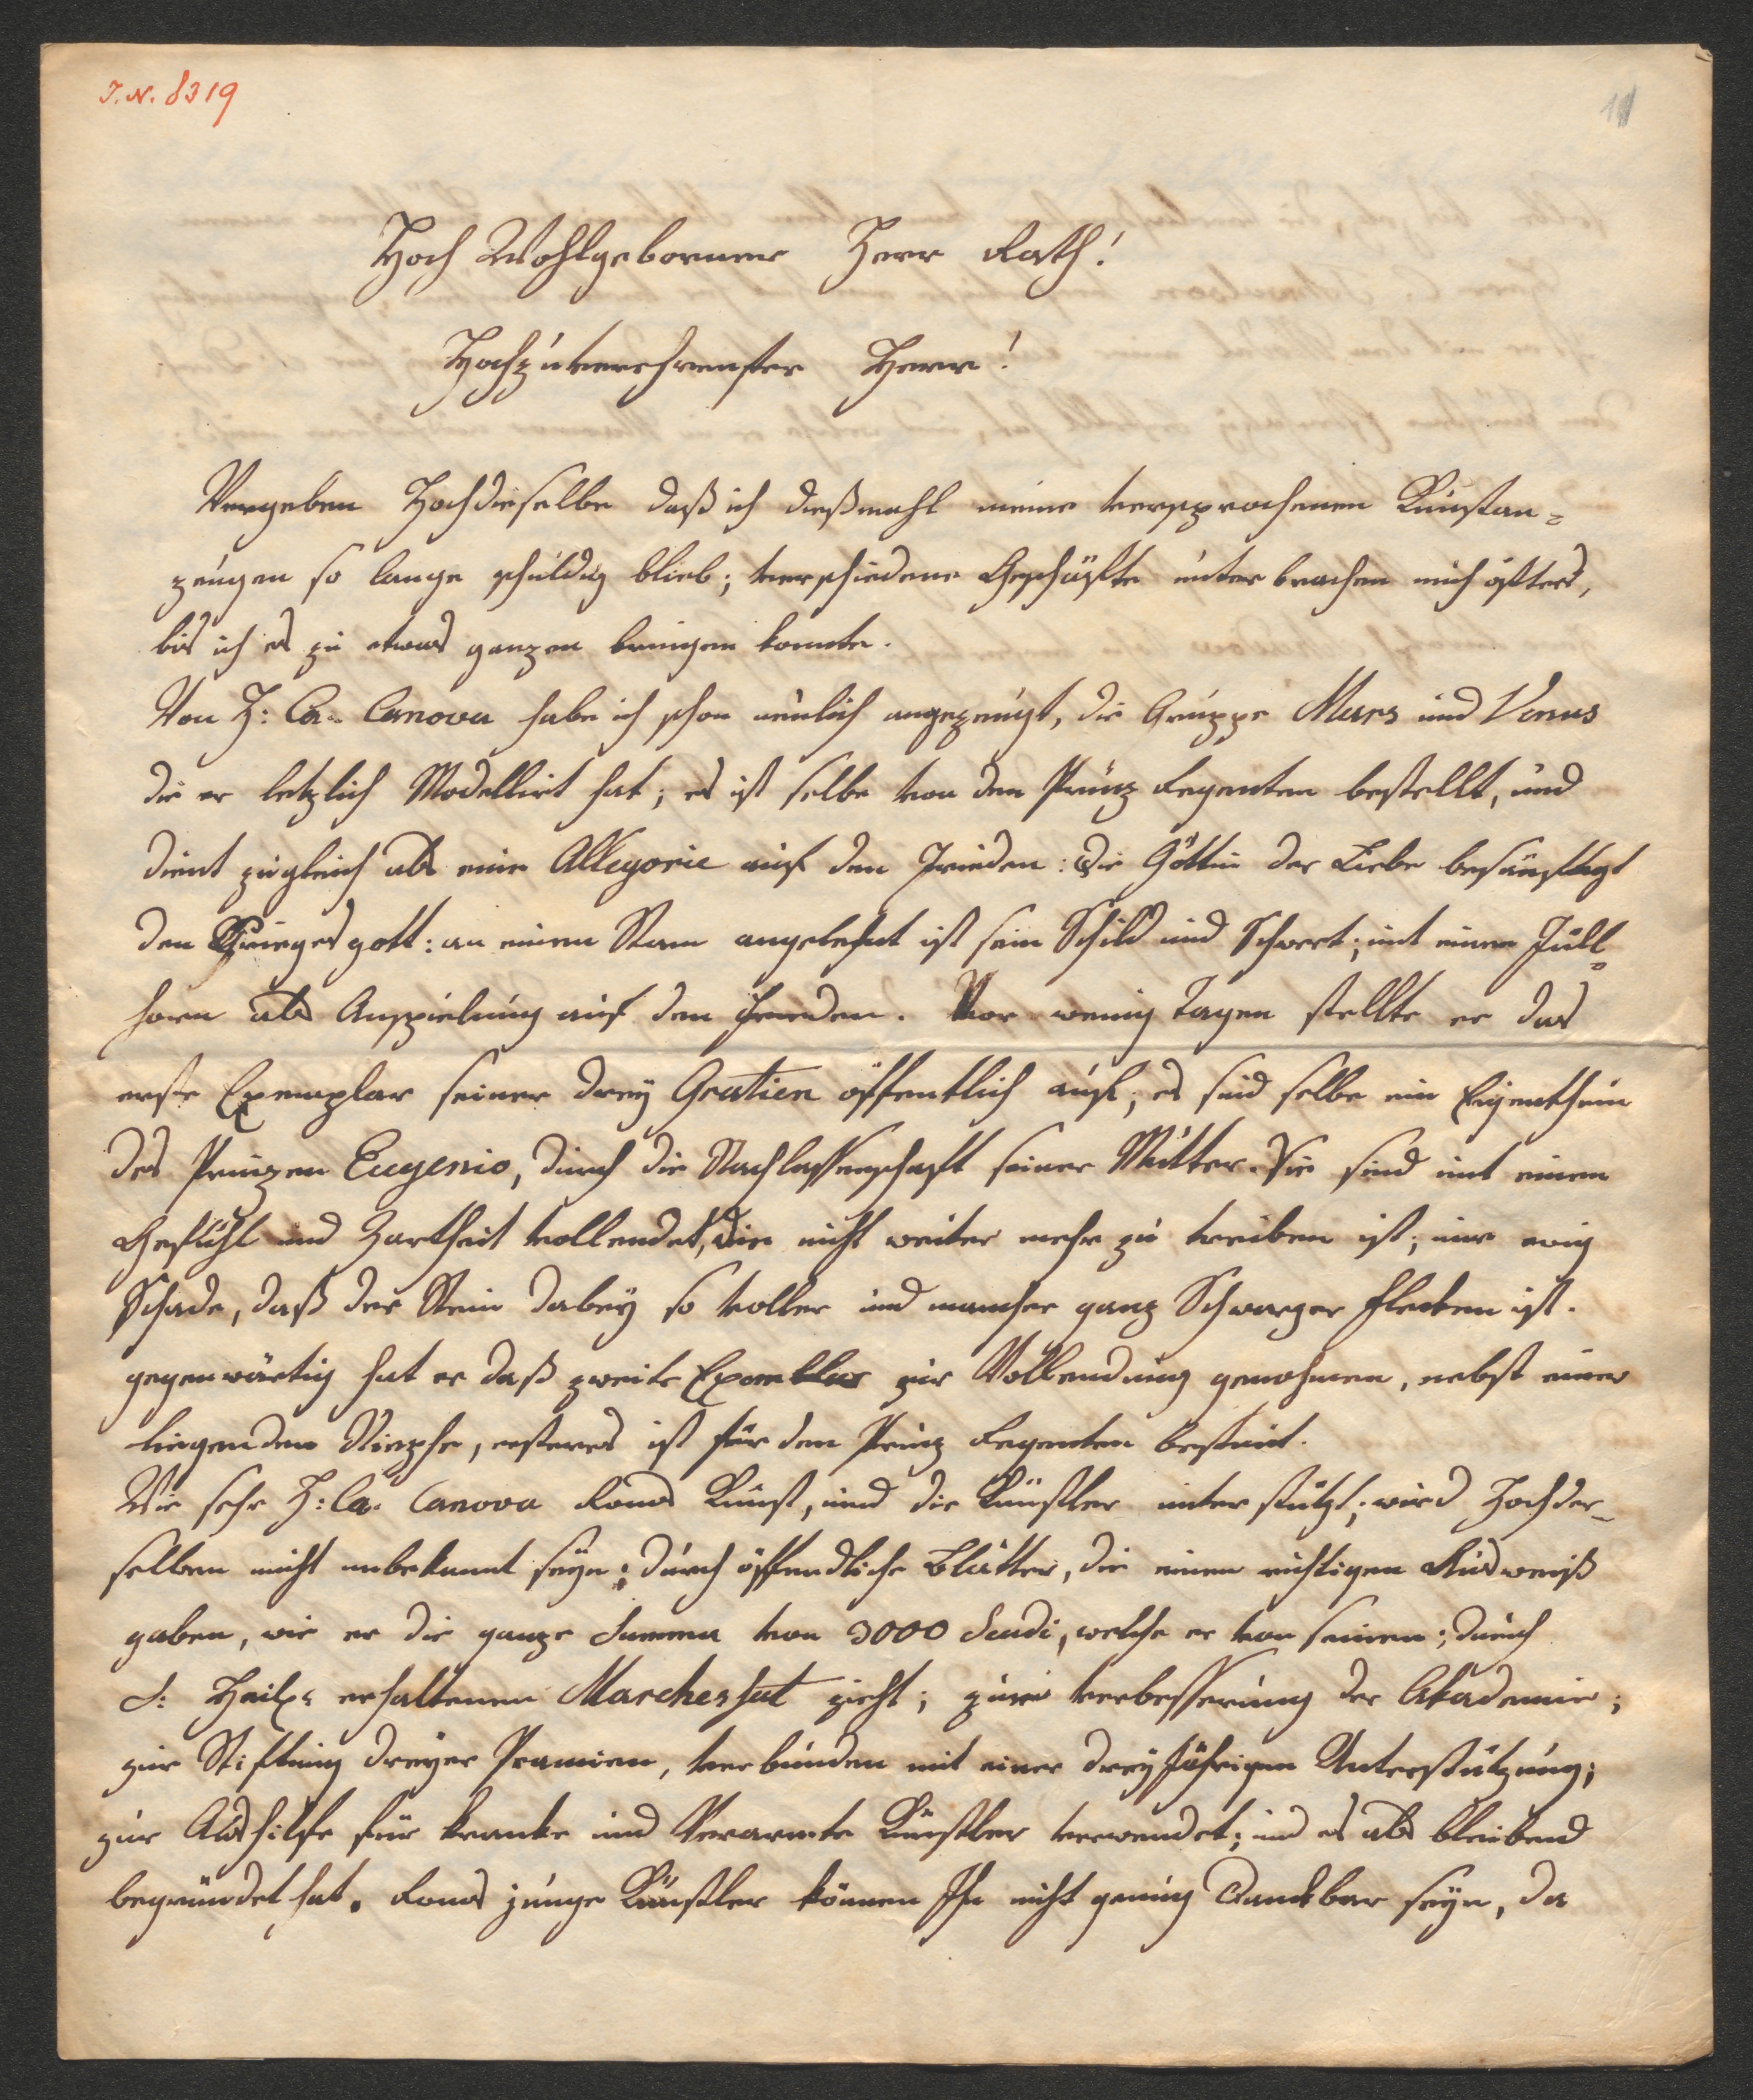 J. N. 8319
Hoch Wohlgeborner Herr Rath!
Hochzuverehrenster Herr!
Vergeben Hochdieselbe daß ich dießmahl meine versprochenen Kunstan=
zeugen so lange schuldig blieb; verschiedene Geschäfte unter brachen mich öfters,
bis ich es zu etwas ganzen bringen konnte.
Von H: Ca. Canova habe ich schon neulich angezeugt, die Gruppe Mars und Venus
die er letzlich Modellirt hat; es ist selbe von den Prinz Regenten bestellt, und
dient zugleich als eine Allegorie auf den Frieden: Die Göttin der Liebe besänftigt
den Krieges gott: an einem Stam angelehnt ist sein Schild und Schwert; mit einem Füll=
horn als Anspielung auf den Frieden. Vor wenig Tagen stellte er das
erste Exemplar seiner drey Gratien öffentlich auf; es sind selbe ein Eigenthum
des Prinzen Eugenio, durch die Nachlassenschaft seiner Mutter. Sie sind mit einem
Gefühl und Zartheit vollendet, die nicht weiter mehr zu treiben ist; nur ewig
Schade, daß der Stein dabey so voller und mancher ganz Schwarzer Flecken ist.
gegenwärtig hat er daß zweite Exemblar zur Vollendung genohmen, nebst einer
liegenden Nimphe, ersteres ist für den Prinz Regenten bestimt.
Wie sehr H: Ca. Canova Roms Kunst, und die Künstler unter stützt; wird Hochder=
selben nicht unbekannt seyn; durch öffendliche Blätter, die einen richtigen Ausweiß
gaben, wie er die ganze Summa von 3000 Scudi, welche er von seinem; durch
S: Heilgs erhaltenen Marchesat zieht; zur verbesserung der Akademie;
zur Stiftung dreyer Pramien, verbunden mit einer dreyjährigen Unterstützung;
zur Aushilfe für kranke und Verarmte Künstler verwendet; und es als bleibend
begründet hat. Roms junge Künstler können Ihn nicht genug Dankbar seyn, da